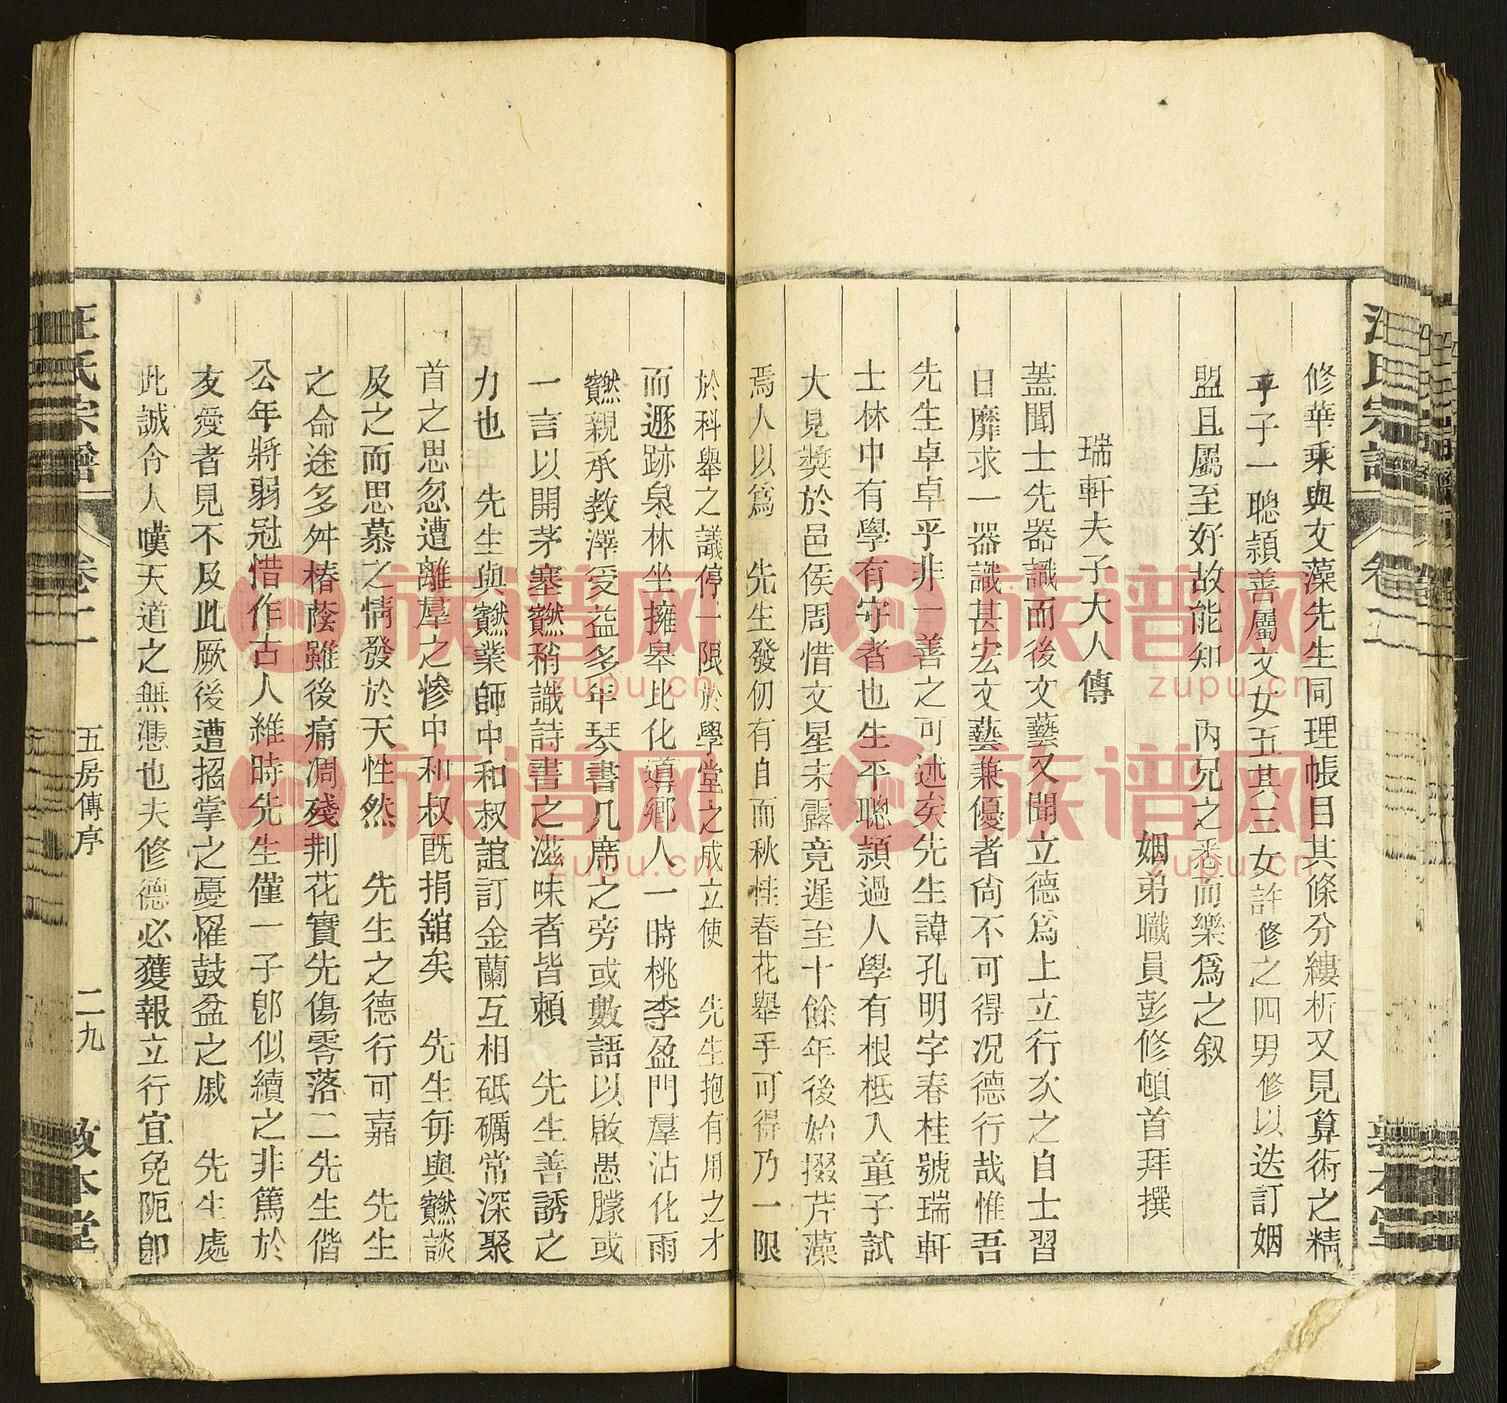 修華乘與文藻先生同理帳目其條分縷析又見算術之精
平子一聰穎善屬文女五其三女許修之四男修以迭訂姻
盟且屬至好故能知 內兄之悉而樂爲之叙
姻弟職員彭修頓首拜撰
瑞軒夫子大人傳
蓋聞士先器識而後文藝又聞立德爲上立行次之自士習
日靡求一器識甚宏文藝兼優者尙不可得况德行哉惟吾
先生卓卓乎非一善之可述矣先生諱孔明字春桂號瑞軒
士林中有學有守者也生平聰穎過人學有根柢入童子試
大見奬於邑侯周惜文星未露竟遲至十餘年後始掇芹藻
焉人以爲 先生發仞有自而秋桂春花舉手可得乃一限
於科舉之議停一限於學堂之成立使 先生抱有用之才
而遯跡泉林坐擁皋比化導鄉人一時桃李盈門羣沾化雨
親承教澤受益多年琴書几席之旁或數語以啟愚朦或
一言以開茅塞稍識詩書之滋味者皆賴 先生善誘之
力也 先生與業師中和叔誼訂金蘭互相砥礪常深聚
首之思忽遭離羣之慘中和叔旣捐舘矣 先生每與談
及之而思慕之情發於天性然 先生之德行可嘉 先生
之命途多舛椿蔭雖後痛凋殘荆花寶先傷零落二先生偕
公年將弱冠惜作古人維時先生僅一子卽似續之非篤於
友愛者見不及此厥後遭掐掌之憂罹鼓盆之戚 先生處
此誠令人嘆天道之無憑也夫修德必獲報立行宜免阨卽
汪氏宗譜
卷二
五房傳序
二九
敦本堂
汪氏宗譜
族谱网
zupu.cn
族谱网
zupu.cn
族谱网
zupu.cn
族谱网
zupu.cn